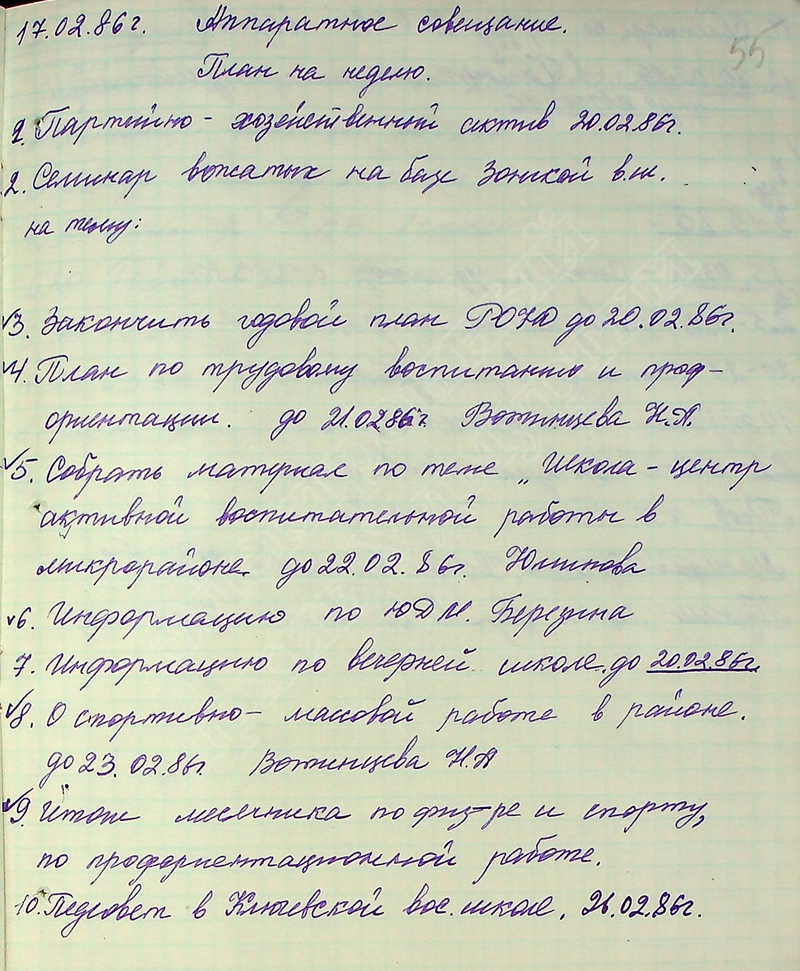 17.02.86г. Аппаратное совещание.
55
План на неделю.
1. Партейно - хозяйственный актив 20.02.86г.
2. Семинар вожатых на базе Зонской в.ш.
на тему:
√3. Закончить годовой план РОНО до 20.02.86г.
√4. План по трудовому воспитанию и проф-
ориентации. до 21.0286г. Вотинцева Н.А.
√5. Собрать материал по теме „Школа - центр
активной воспитательной работы в
микрорайоне. до 22.02.86г. Юминова
√6. Информацию по ЮДМ. Березина
7. Информацию по вечерней школе. до 20.02.86г.
√8. О спортивно - массовой работе в районе.
до 23.02.86г. Вотинцева Н.А
√9. Итоги месячника по физ-ре и спорту,
по профориентационной работе.
10. Педсовет в Ключевской вос. школе. 26.02.86г.